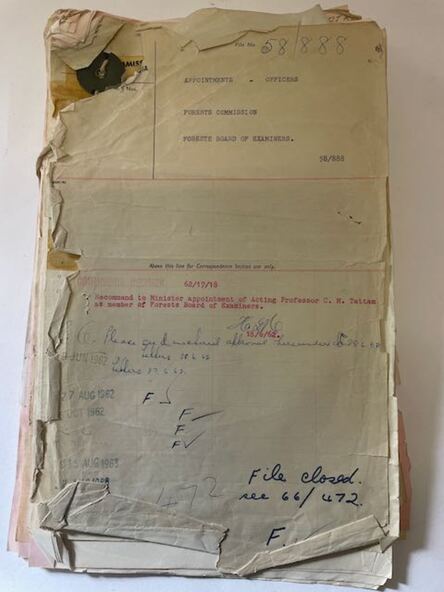 File No 58/888
APPOINTMENTS - OFFICERS
FORESTS COMMISSION
FORESTS BOARD OF EXAMINERS.
58/888
Above this line for Correspondence Section use only.
62/17/18
Recommend to Minister appointment of Acting Professor C. M. Tattam
as member of Forests Board of Examiners.
18/6/62.
Please
JUN 1962
27 AUG 1962
F
OCT 1962
F
F
F
AUG 1963
472
File closed.
see 66/472
F.